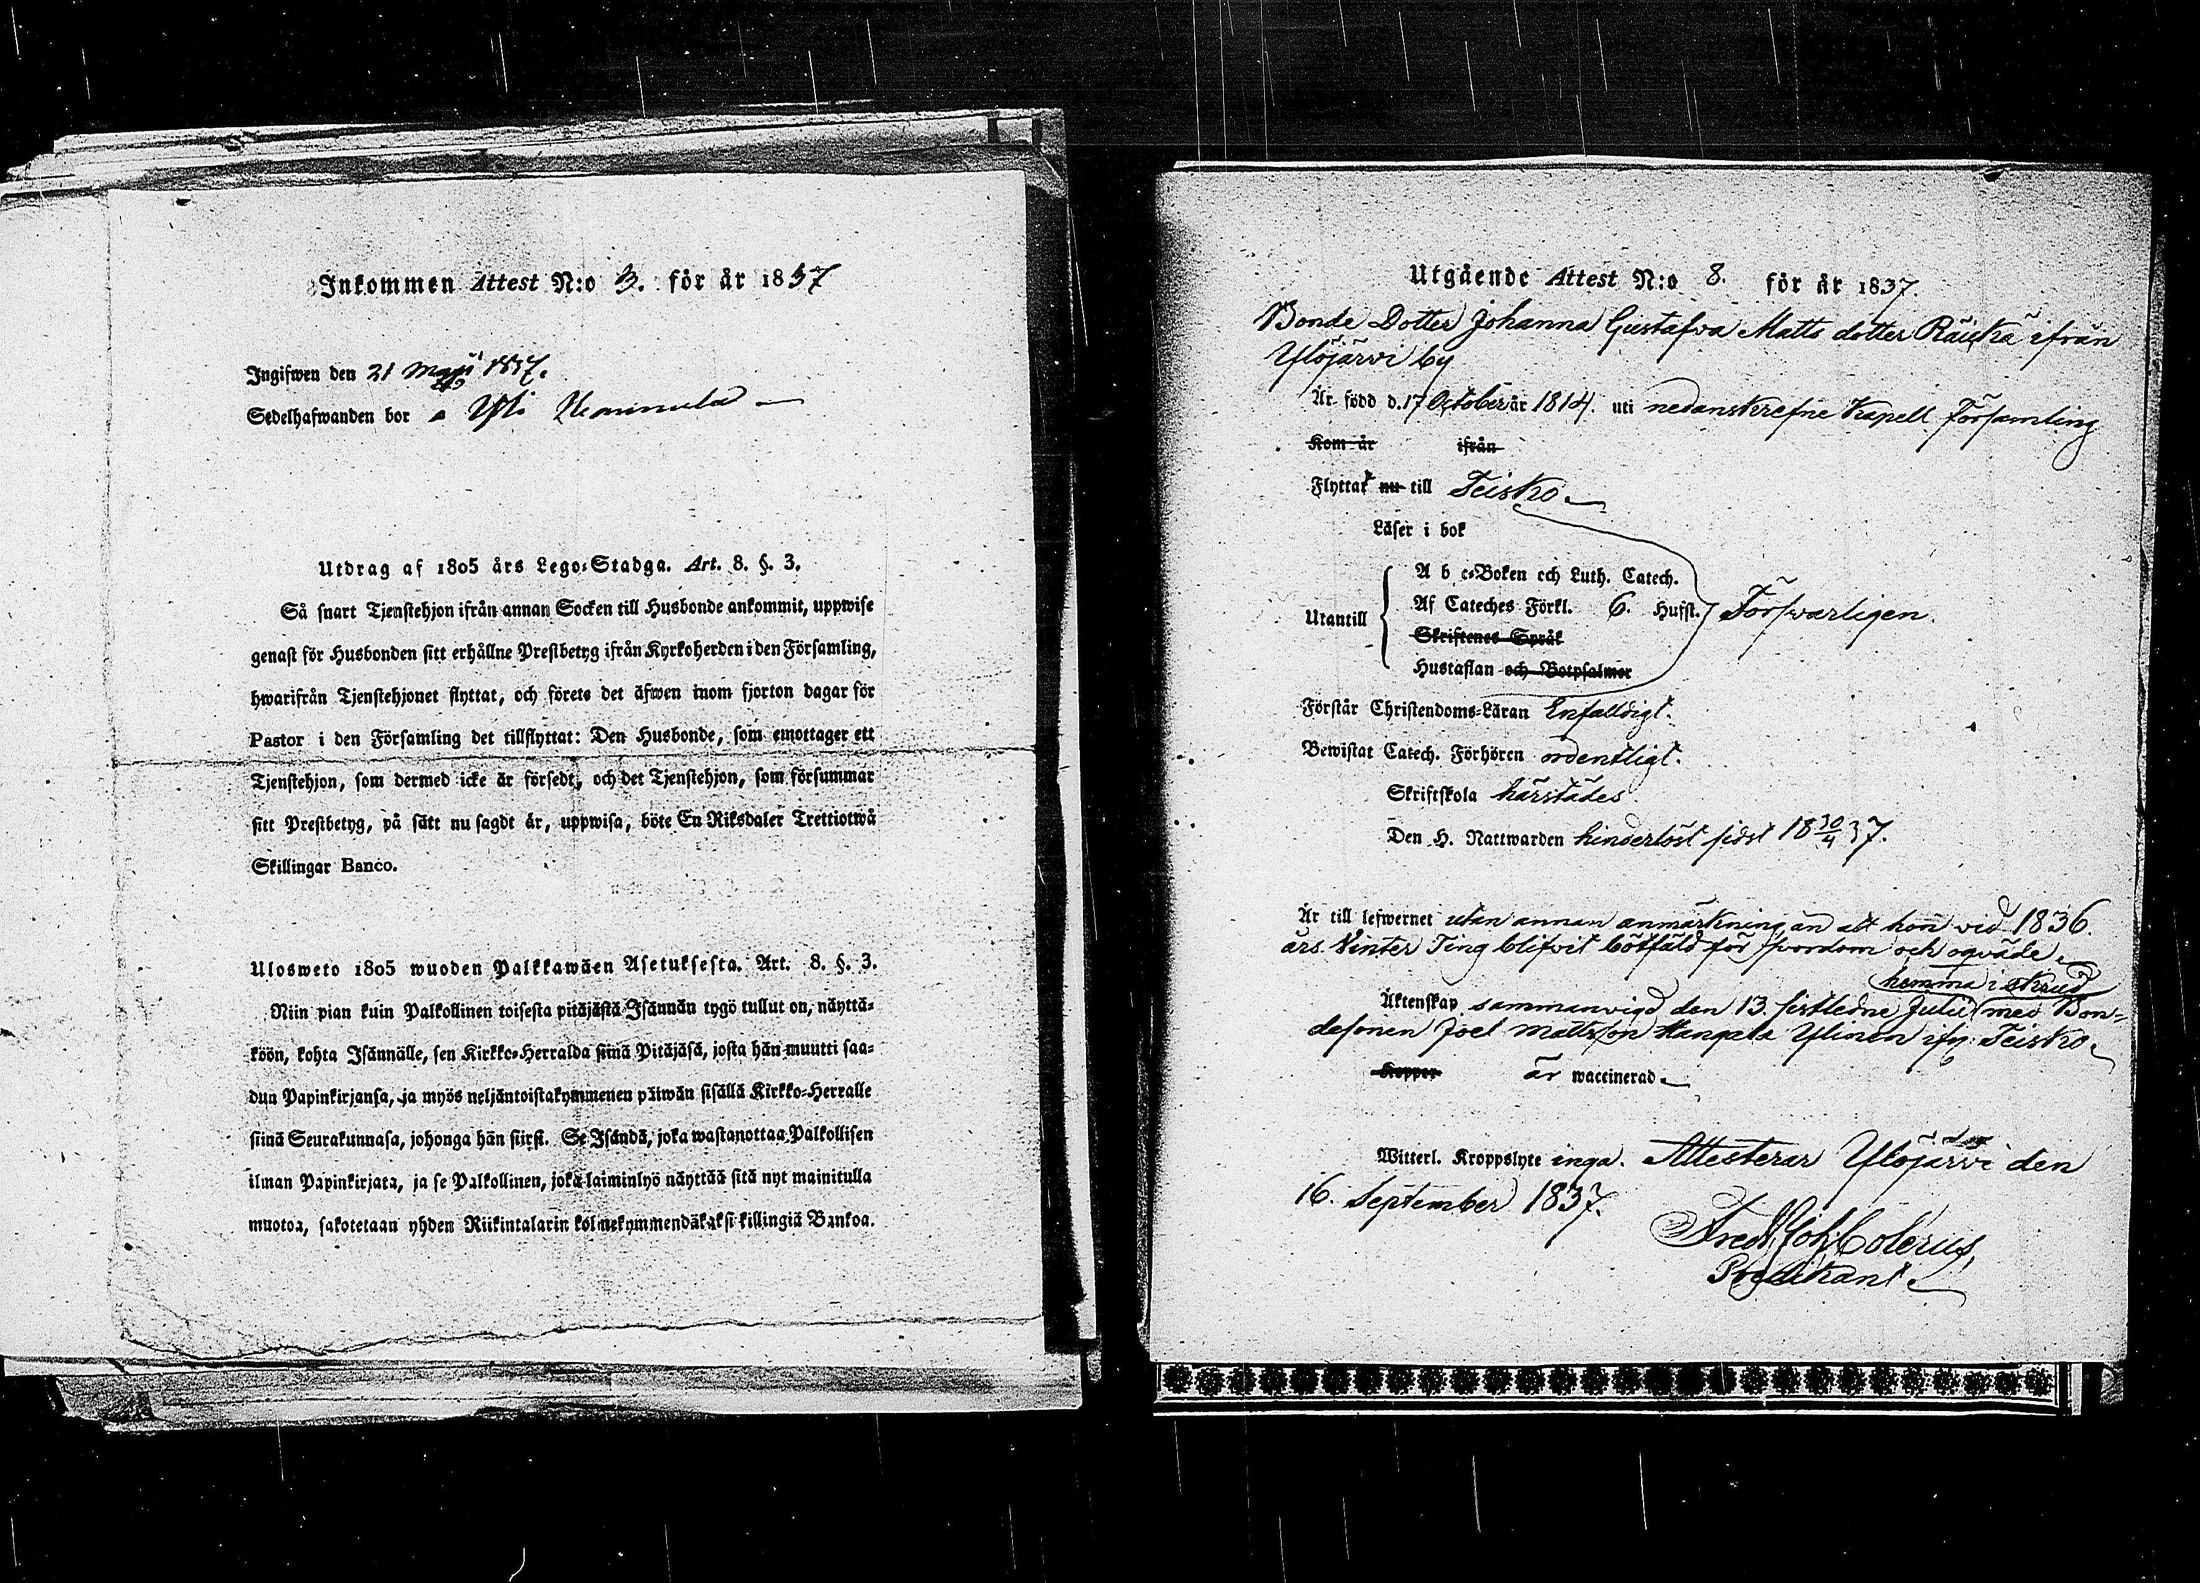 Inkommen Attest N:o 3. för år 1837
Ingifwen den 21 Maji 1837.
Sedelhafwanden bor a Yli
Utdrag af 1805 års Lego-Stadga. Art. 8. §. 3.
Så snart Tjenstehjon ifrån annan Socken till Husbonde ankommit, uppwise
genast för Husbonden sitt erhållne Prestbetyg ifrån Kyrkoherden i den Församling,
hwarifrån Tjenstehjonet flyttat, och förete det äfwen inom fjorton dagar för
Pastor i den Församling det tillflyttat: Den Husbonde, som emottager ett
Tjenstehjon, som dermed icke är försedt, och det Tjenstehjon, som försummar
sitt Prestbetyg, på sätt nu sagdt är, uppwisa, böte En Riksdaler Trettiotwå
Skillingar Banco.
Ulosweto 1805 wuoden Palkkawäen Asetuksesta. Art. 8. §. 3.
Niin pian kuin Palkollinen toisesta pitäjästä Isännän tygö tullut on, näyttä-
köön, kohta Isännälle, sen Kirkko-Herralda siinä Pitäjäsä, josta hän muutti saa-
dun Papinkirjansa, ja myös neljäntoistakymmenen päiwän sisällä Kirkko-Herralle
siinä Seurakunnasa, johonga hän siirst. Se Isändä, joka wastanottaa Palkollisen
ilman Papinkirjata, ja se Palkollinen, joka laiminlyö näyttää sitä nyt mainitulla
muotoa, sakotetaan yhden Riikintalarin kolmekymmendäkaksi killingiä Bankoa.
Utgående Attest N:o 8. för år 1837.
Bonde Dotter Johanna Gustafva Matts dotter Räickä ifrån
Ylöjärvi by
Är född d. 17 October år 1814. uti nedanskrefne Kapell Församling
Kom år ifrån
Flyttat nu till Teisko
Läser i bok
A b c-Boken och Luth. Catech.
Utantill Af Cateches Förkl. 6. Hufst. Försvarligen.
Skriftenes Språk
Hustaflan och Botpsalmer
Förstår Christendoms-Läran Enfalldigt.
Bewistat Catech. Förhören ordentligt.
Skriftskola härstädes
Den H. Nattwarden hinderlöst sidst 18 30/4 37.
Är till lefwernet utan annan anmärkning än att hon vid 1836.
års Vinter Ting blifvit bötfäld för svordom och oqväde
hemma i skrud
Äktenskap sammanvigd den 13. sistledne Julii med Bon-
desonen Joel Mattsson Kangala Ylinen ifr: Teisko
Koppor är waccinerad
Witterl. Kroppslyte inga. Attesterar Ylöjärvi den
16. September 1837.
Fredr. Joh. Colerus,
Predikant.